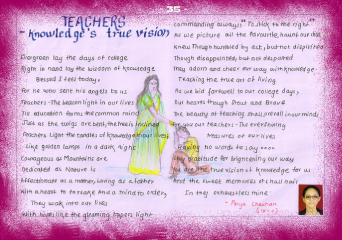 35
TEACHERS
- Knowledge's true vision
Evergreen lay the days of college
Right in need lay the wisdom of knowledge
Blessed I feel today,
For he who sent his angels to us
Teachers - The beacon light in our lives
Tis education forms the common mind
Just as the twigs are bent, the tree is inclined
Teachers Light the candles of knowledge in our lives
Like golden lamps in a dark night
Courageous as Mountains are
Dedicated as Nature is
Affectionate as a mother, loving as a father
With a heart to manage and a mind to order,
They walk into our lives
With hopes like the gleaming tapers light
commanding always, "To stick to the right"
As we picture all the favourite hours our day
Knew Though humbled by act, but not despised
Though disappointed, but not despaired
They adorn and cheer our way with knowledge
Teaching the true art of living
As we bid farewell to our college days,
Our hearts though Stout and Brave
The beauty of teaching shall prevail in our minds
For you our Teachers - The everlasting
treasures of our lives
Having no words to say
gratitude for brightening our way
are the true vision of knowledge for us
And the sweet memories of shall last
In they exhaustless mine
- Priya Chauhan